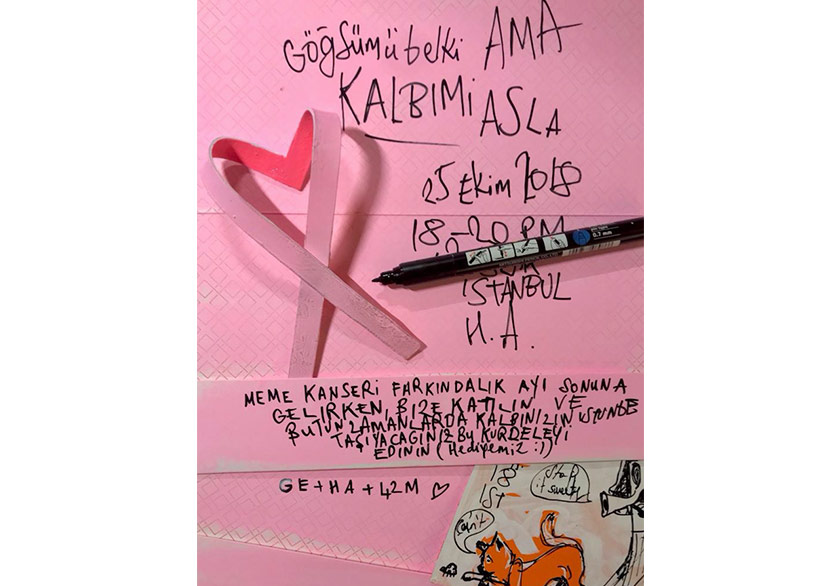 Göğsümü belki AMA
KALBIMI ASLA
25 Ekim 2018
18-20 PM
İSTANBUL
H.A.
MEME KANSERİ FARKINDALIK AYI SONUNA
GELİRKEN, BİZE KATILIN VE
BÜTÜN ZAMANLARDA KALBİNİZİN ÜSTÜNDE
TAŞIYACAĞINIZ BU KURDELEYİ
EDİNİN (Hediyemiz :))
GE+HA+42M ♡
Stop
it sweety
Can't
0.7 mm